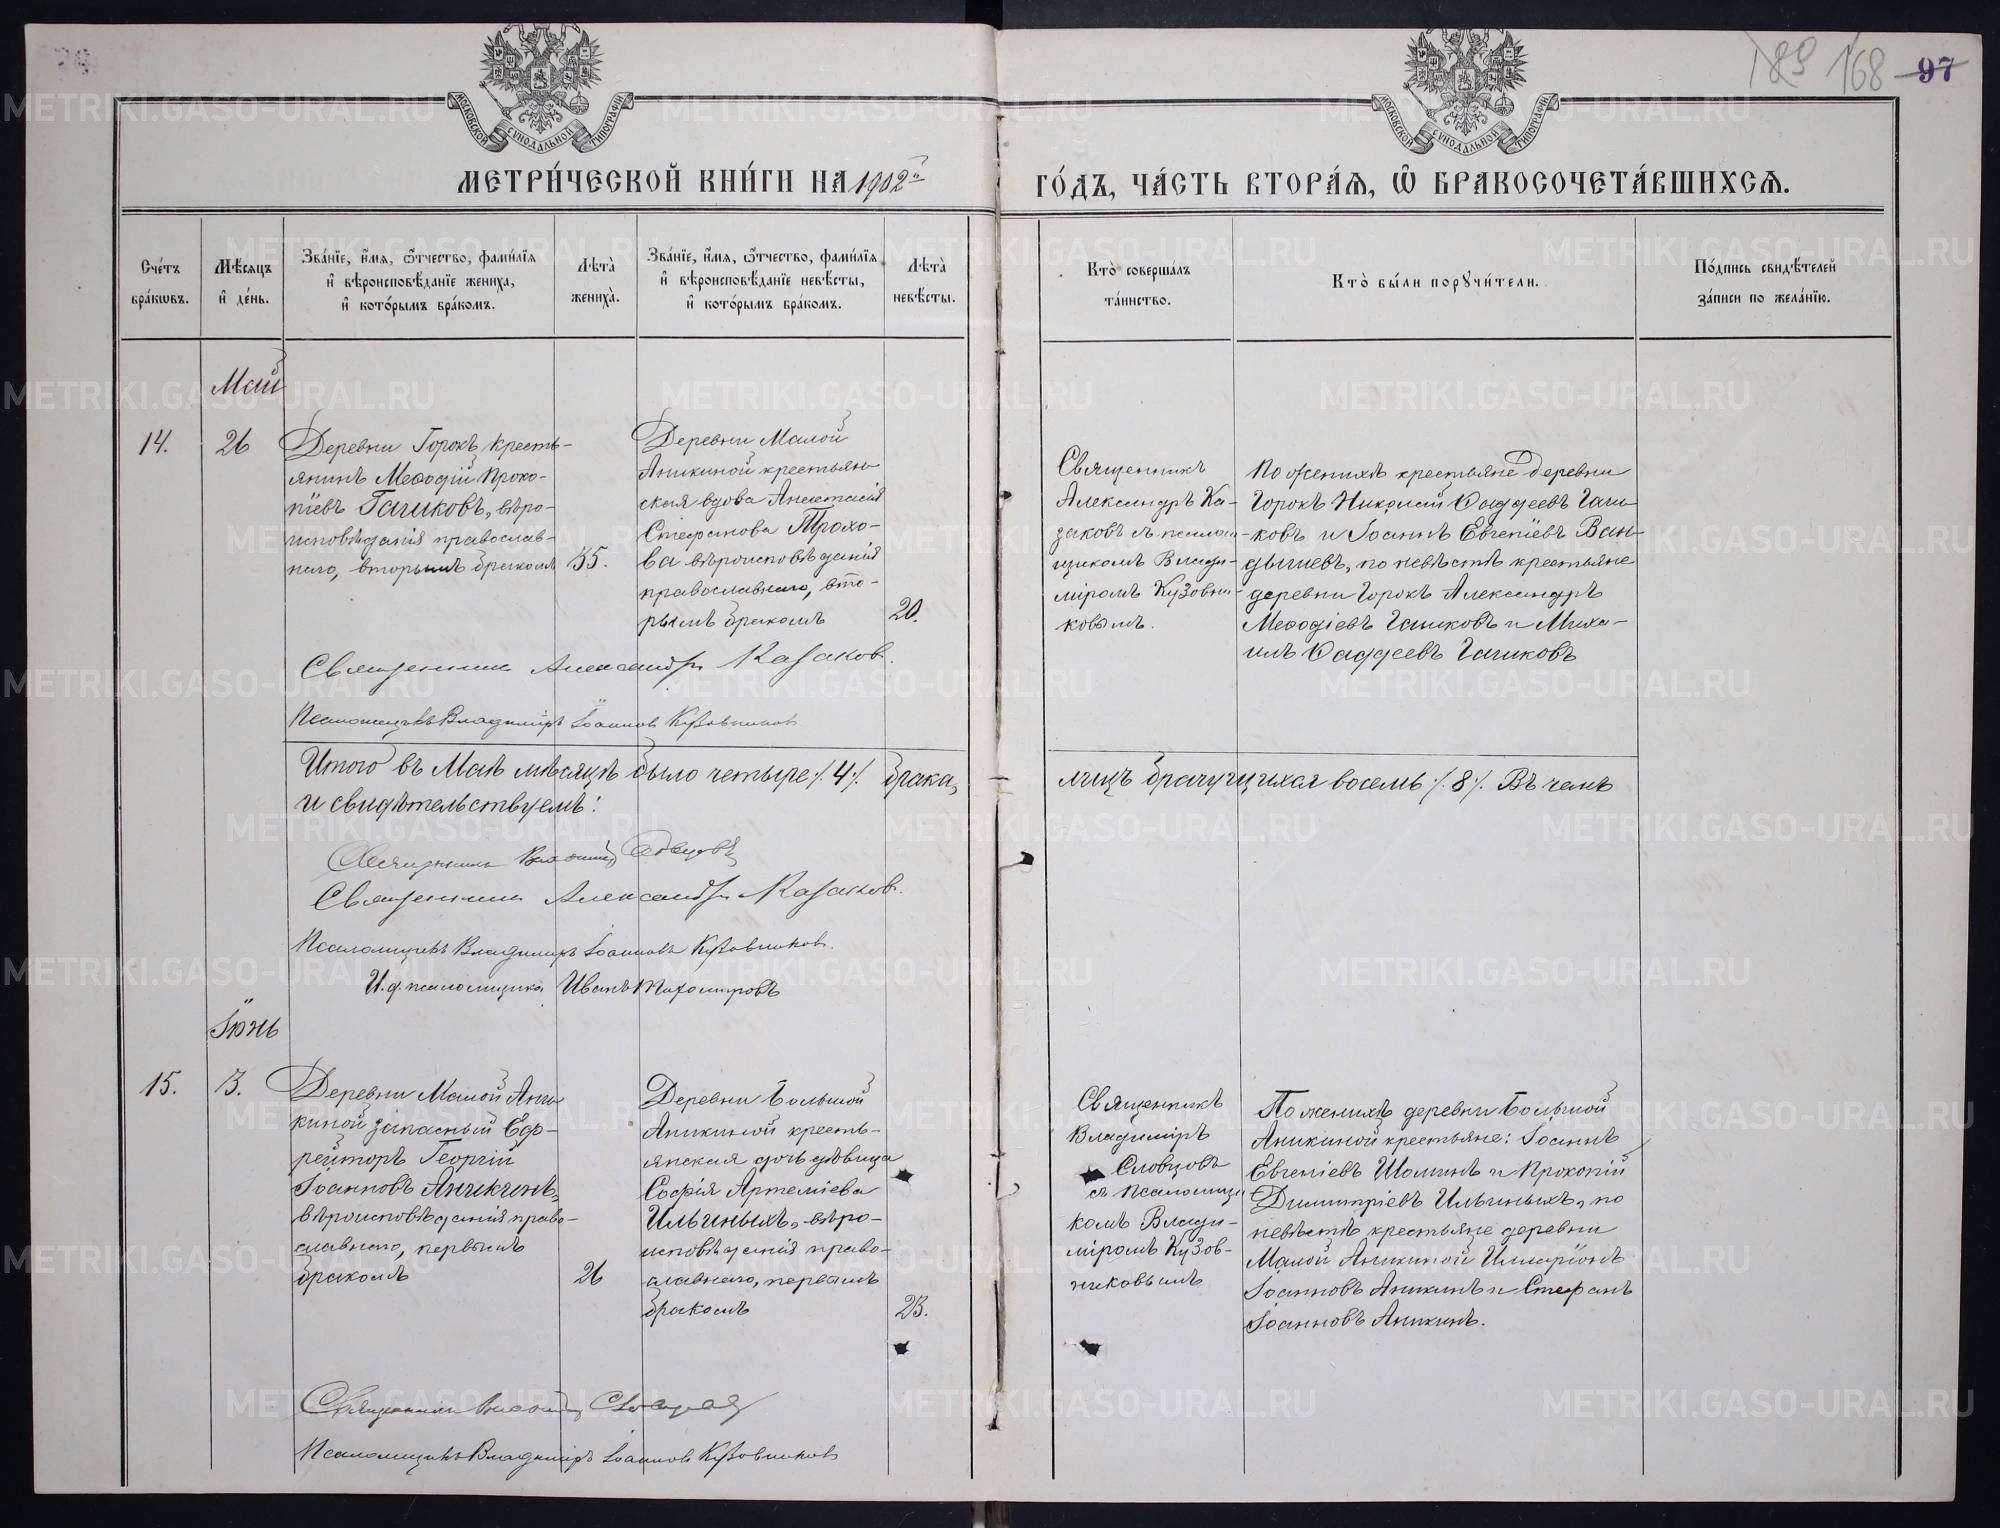 189 168 97
МОСКОВСКОЙ СѴНОДАЛЬНОЙ ТИПОГРАФІИ
МОСКОВСКОЙ СѴНОДАЛЬНОЙ ТИПОГРАФІИ
МЕТРИ́ЧЕСКОЙ КНИ́ГИ НА 1902й
ГО́ДЪ, ЧА́СТЬ ВТОРА́Ѧ, Ѡ҆ БРАКОСОЧЕТА́ВШИХСѦ.
Сче́тъ
бра́кѡвъ.
Мѣ́сѧцъ
и҆ де́нь.
Зва́нїе, и҆́мѧ, ѻ҆́тчество, фами́лїѧ
и҆ вѣроисповѣ́данїе жениха̀,
и҆ кото́рымъ бра́комъ.
Лѣта̀
жениха̀.
Зва́нїе, и҆́мѧ, ѻ҆́тчество, фами́лїѧ
и҆ вѣроисповѣ́данїе невѣ́сты,
и҆ кото́рымъ бра́комъ.
Лѣта̀
невѣ́сты.
Кто̀ соверша́лъ
та́инство.
Кто̀ бы́ли порꙋчи́тели.
По́дпись свидѣ́телей
за́писи по жела́нїю.
Май
14.
26
Деревни Горокъ кресть-
янинъ Меѳодій Проко-
піевъ Гачиковъ, вѣро-
исповѣданія православ-
наго, вторымъ бракомъ
35.
Деревни Малой
Аникиной крестьян-
ская вдова Анастасія
Стефанова Трохо-
ва вѣроисповѣданія
православнаго, вто-
рымъ бракомъ
20.
Священникъ
Александръ Ка-
заковъ съ псалом-
щикомъ Влади-
міромъ Кузовни-
ковымъ.
По женихѣ крестьяне деревни
Горокъ Николай Ѳаддеевъ Гачи-
ковъ и Іоаннъ Евгеніевъ Ван-
дышевъ, по невѣстѣ крестьяне
деревни Горокъ Александръ
Меѳодіевъ Гачиковъ и Миха-
илъ Ѳаддеевъ Гачиковъ
Священникъ Александръ Казаков.
Псаломщикъ Владиміръ Іоаннов Кузовников
Итого въ Маѣ мѣсяцѣ было четыре /.4/. брака,
лицъ брачущихся восемь /.8/. Въ чемъ
и свидѣтельствуемъ:
Священникъ Владиміръ Словцовъ
Священникъ Александръ Казаков.
Псаломщикъ Владиміръ Іоанновъ Кузовников.
И. д. псаломщика Иванъ Тихомировъ
Іюнь
15.
3.
Деревни Малой Ани-
киной запасный Еф-
рейторъ Георгій
Іоанновъ Аникинъ,
вѣроисповѣданія право-
славнаго, первымъ
бракомъ
26
Деревни Большой
Аникиной кресть-
янская дочь дѣвица
Софія Артеміева
Ильиныхъ, вѣро-
исповѣданія право-
славнаго, первымъ
бракомъ
23.
Священникъ
Владиміръ
Словцовъ
съ псаломщи
комъ Влади-
міромъ Кузов-
никовымъ
По женихѣ деревни Большой
Аникиной крестьяне: Іоаннъ
Евгеніевъ Шоминъ и Прокопій
Димитріевъ Ильиныхъ, по
невѣстѣ крестьяне деревни
Малой Аникиной Илларіонъ
Іоанновъ Аникинъ и Стефанъ
Іоанновъ Аникинъ.
Священникъ Владиміръ Словцов
Псаломщикъ Владиміръ Іоаннов Кузовников
METRIKI.GASO-URAL.RU